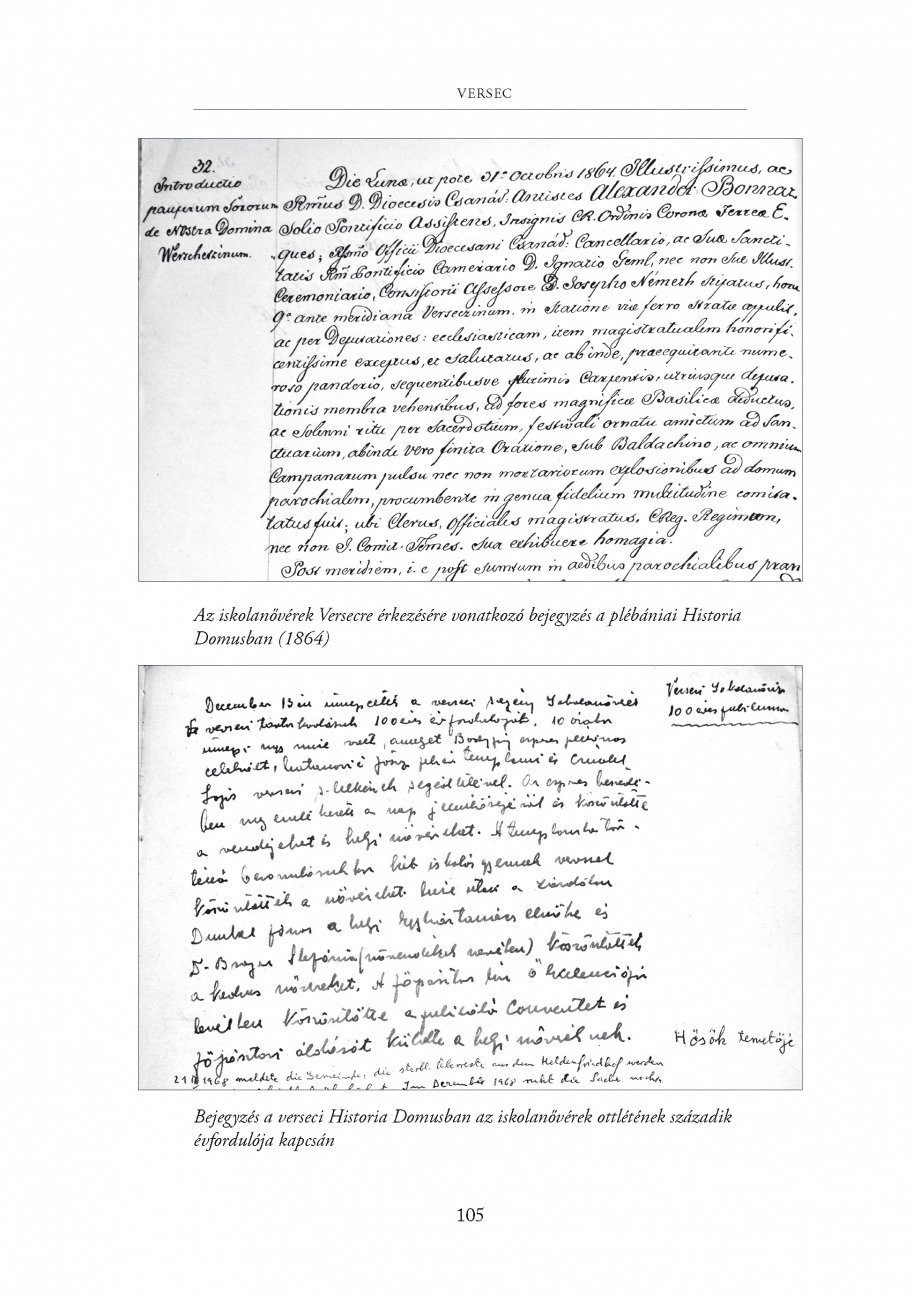 VERSEC
32.
Introductio
pauperum Sororum
de Nostra Domina
Werschetzinum.
Die Lunæ, ut pote 31ª Octobris 1864. Illustrissimus, ac
Rm̃us D. Dioecesis Csanád. Antistes Alexander Bonnaz
Solio Pontificio Assistens, Insignis CR. Ordinis Coronæ Ferreæ E-
ques; Officii Dioecesani Csanád: Cancellario, ac Suæ Sancti-
tatis Pontificio Camerario D. Ignatio Geml, nec non Suæ Illust.
Ceremoniario, Consistorii Assessore D. Josepho Németh stipatus, hora
9ª ante meridiana Versecinum in statione viæ ferro stratæ appulit,
ac per Deputationes: ecclesiasticam, item magistratualem honorifi-
centissime exceptus, et salutatus, ac abinde, praeequitante nume-
roso panderio, sequentibusve plurimis Carpentis, utriusque deputa-
tionis membra vehentibus, ad fores magnificæ Basilicæ deductus,
ac Solenni ritu per Sacerdotium, festivali ornatu amictum ad San-
ctuarium, abinde vero finita Oratione, sub Baldachino, ac omnium
Campanarum pulsu nec non mortariorum explosionibus ad domum
parochialem, procumbente in genua fidelium multitudine comita-
tatus fuit; ubi Clerus, Officiales magistratus, CReg. Regiminis,
nec non I. Comit. Temes. sua exhibuere homagia.
Post meridiem, i. e post sumtum in aedibus parochialibus pran
Az iskolanővérek Versecre érkezésére vonatkozó bejegyzés a plébániai Historia
Domusban (1864)
Verseci Iskolanővérek
100 éves jubileuma
December 13án ünnepelték a verseci szegény Iskolanővérek
verseci tartózkodásuk 100 éves évfordulóját. 10 órakor
ünnepi nagy mise volt, amelyet esperes plébános
celebrált, János
verseci s. lelkészek segédletével. Az esperes beszédé-
ben megemlékezett a nap jelentőségéről és köszöntötte
a vendégeket és helyi nővéreket. A templomba tör-
ténő bevonulásukkor két iskolás gyermek verssel
köszöntötték a nővéreket mise után a zárdában
János a helyi Egyháztanács elnöke és
Dr. Stefánia (növendékek nevében) köszöntötték
a kedves nővéreket. A főpásztor úr Ő Excelenciája
levélben köszöntötte a jubiláló Conventet és
főpásztori áldását küldte a helyi nővéreknek.
Hősök temetője
1968 meldete die Gemeinde, die sterbl. Überreste aus dem Heldenfriedhof werden
Im Dezember 1968 ruht die Sache noch
Bejegyzés a verseci Historia Domusban az iskolanővérek ottlétének századik
évfordulója kapcsán
105